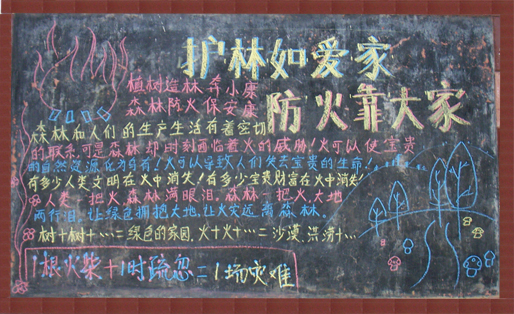 护林如爱家
防火靠大家
植树造林 奔小康
森林防火 保安康
森林和人们的生产生活有着密切
的联系,可是森林却时刻面临着火的威胁!火可以使宝贵
的自然资源化为乌有!火可以导致人们失去宝贵的生命!
有多少人类文明在火中消失!有多少宝贵财富在火中消失!
人类一把火,森林满眼泪。森林一把火,大地
两行泪。让绿色拥抱大地,让火灾远离森林。
树+树+……=绿色的家园,火+火+……=沙漠、洪涝+……
1根火柴+1时疏忽=1场灾难